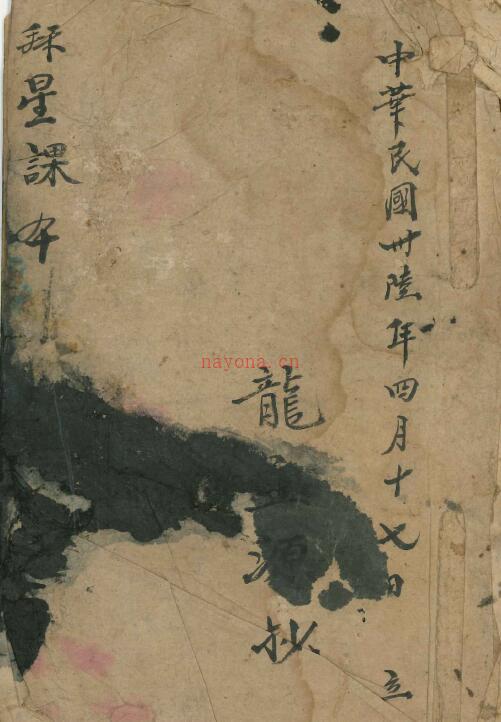 中華民國卅陸年四月十七日 立
龍 源 抄
星課本
nayona.cn